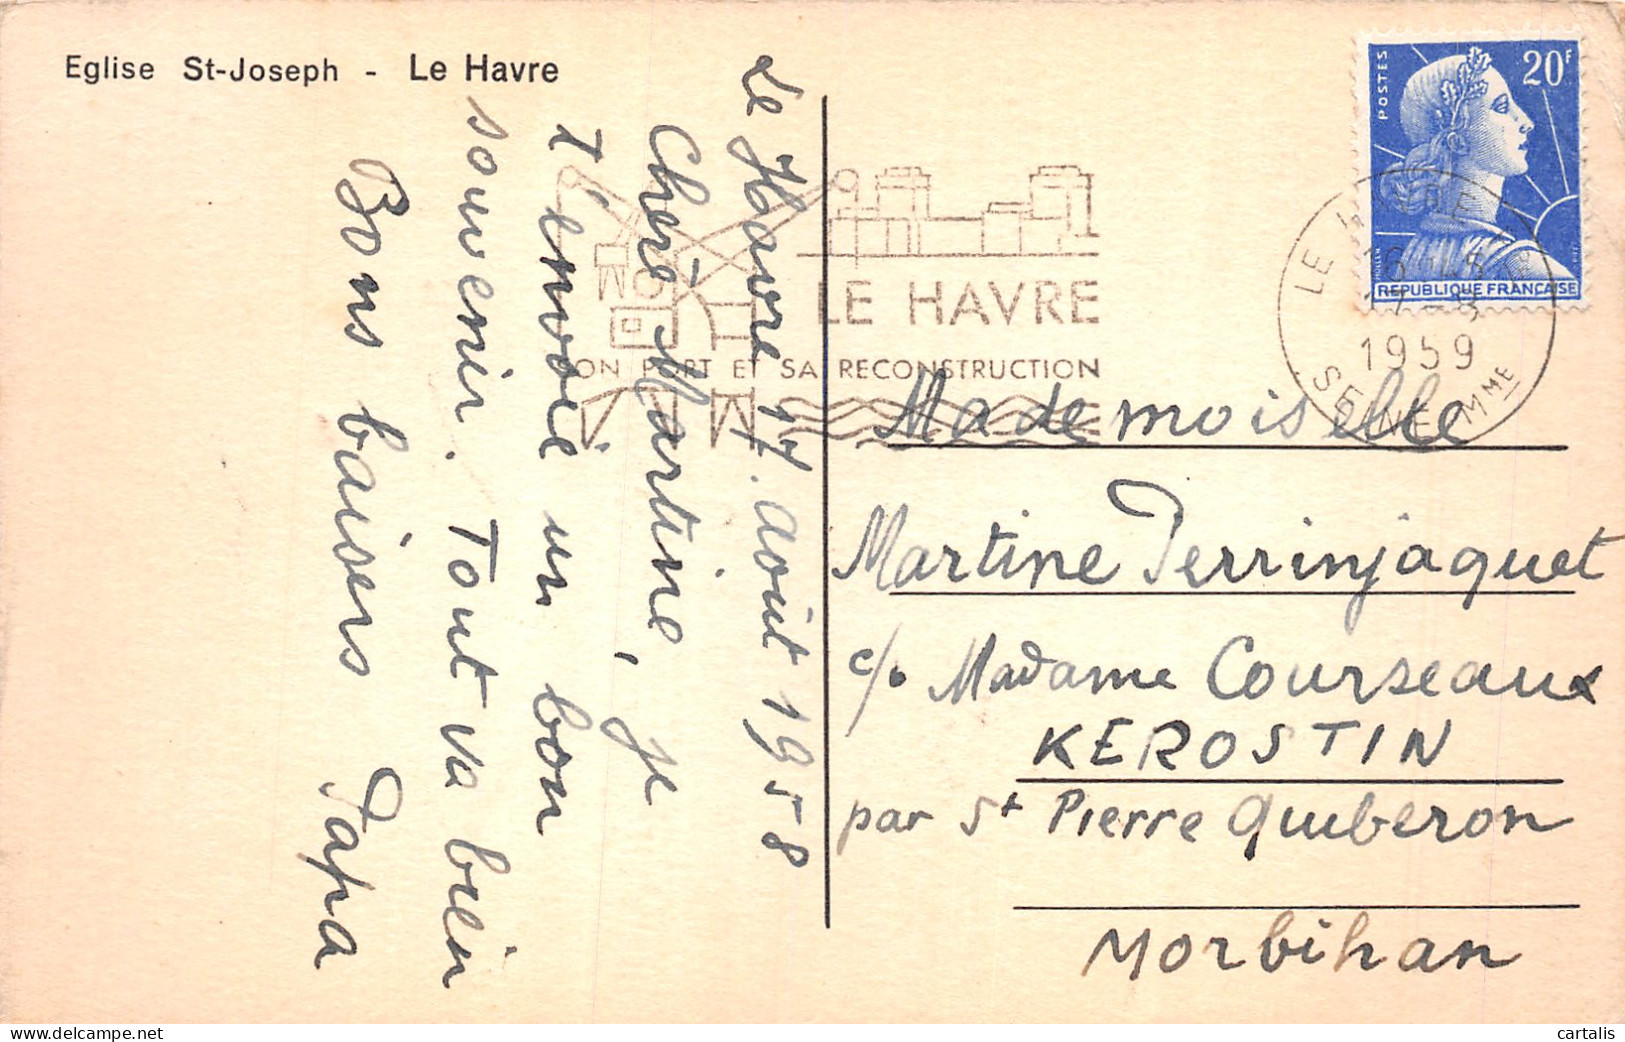 Eglise St-Joseph - Le Havre
Le Havre 17. août 1958
Chère Martine, je
t'envoie un bon
souvenir. Tout va bien
Bons baisers Papa
LE HAVRE
SON PORT ET SA RECONSTRUCTION
POSTES
20F
REPUBLIQUE FRANÇAISE
MULLER
LE HAVRE
1959
SEINE MME
Mademoiselle
Martine Perrinjaquet
c/o Madame Courseaux
KEROSTIN
par St Pierre Quiberon
Morbihan
cartalis